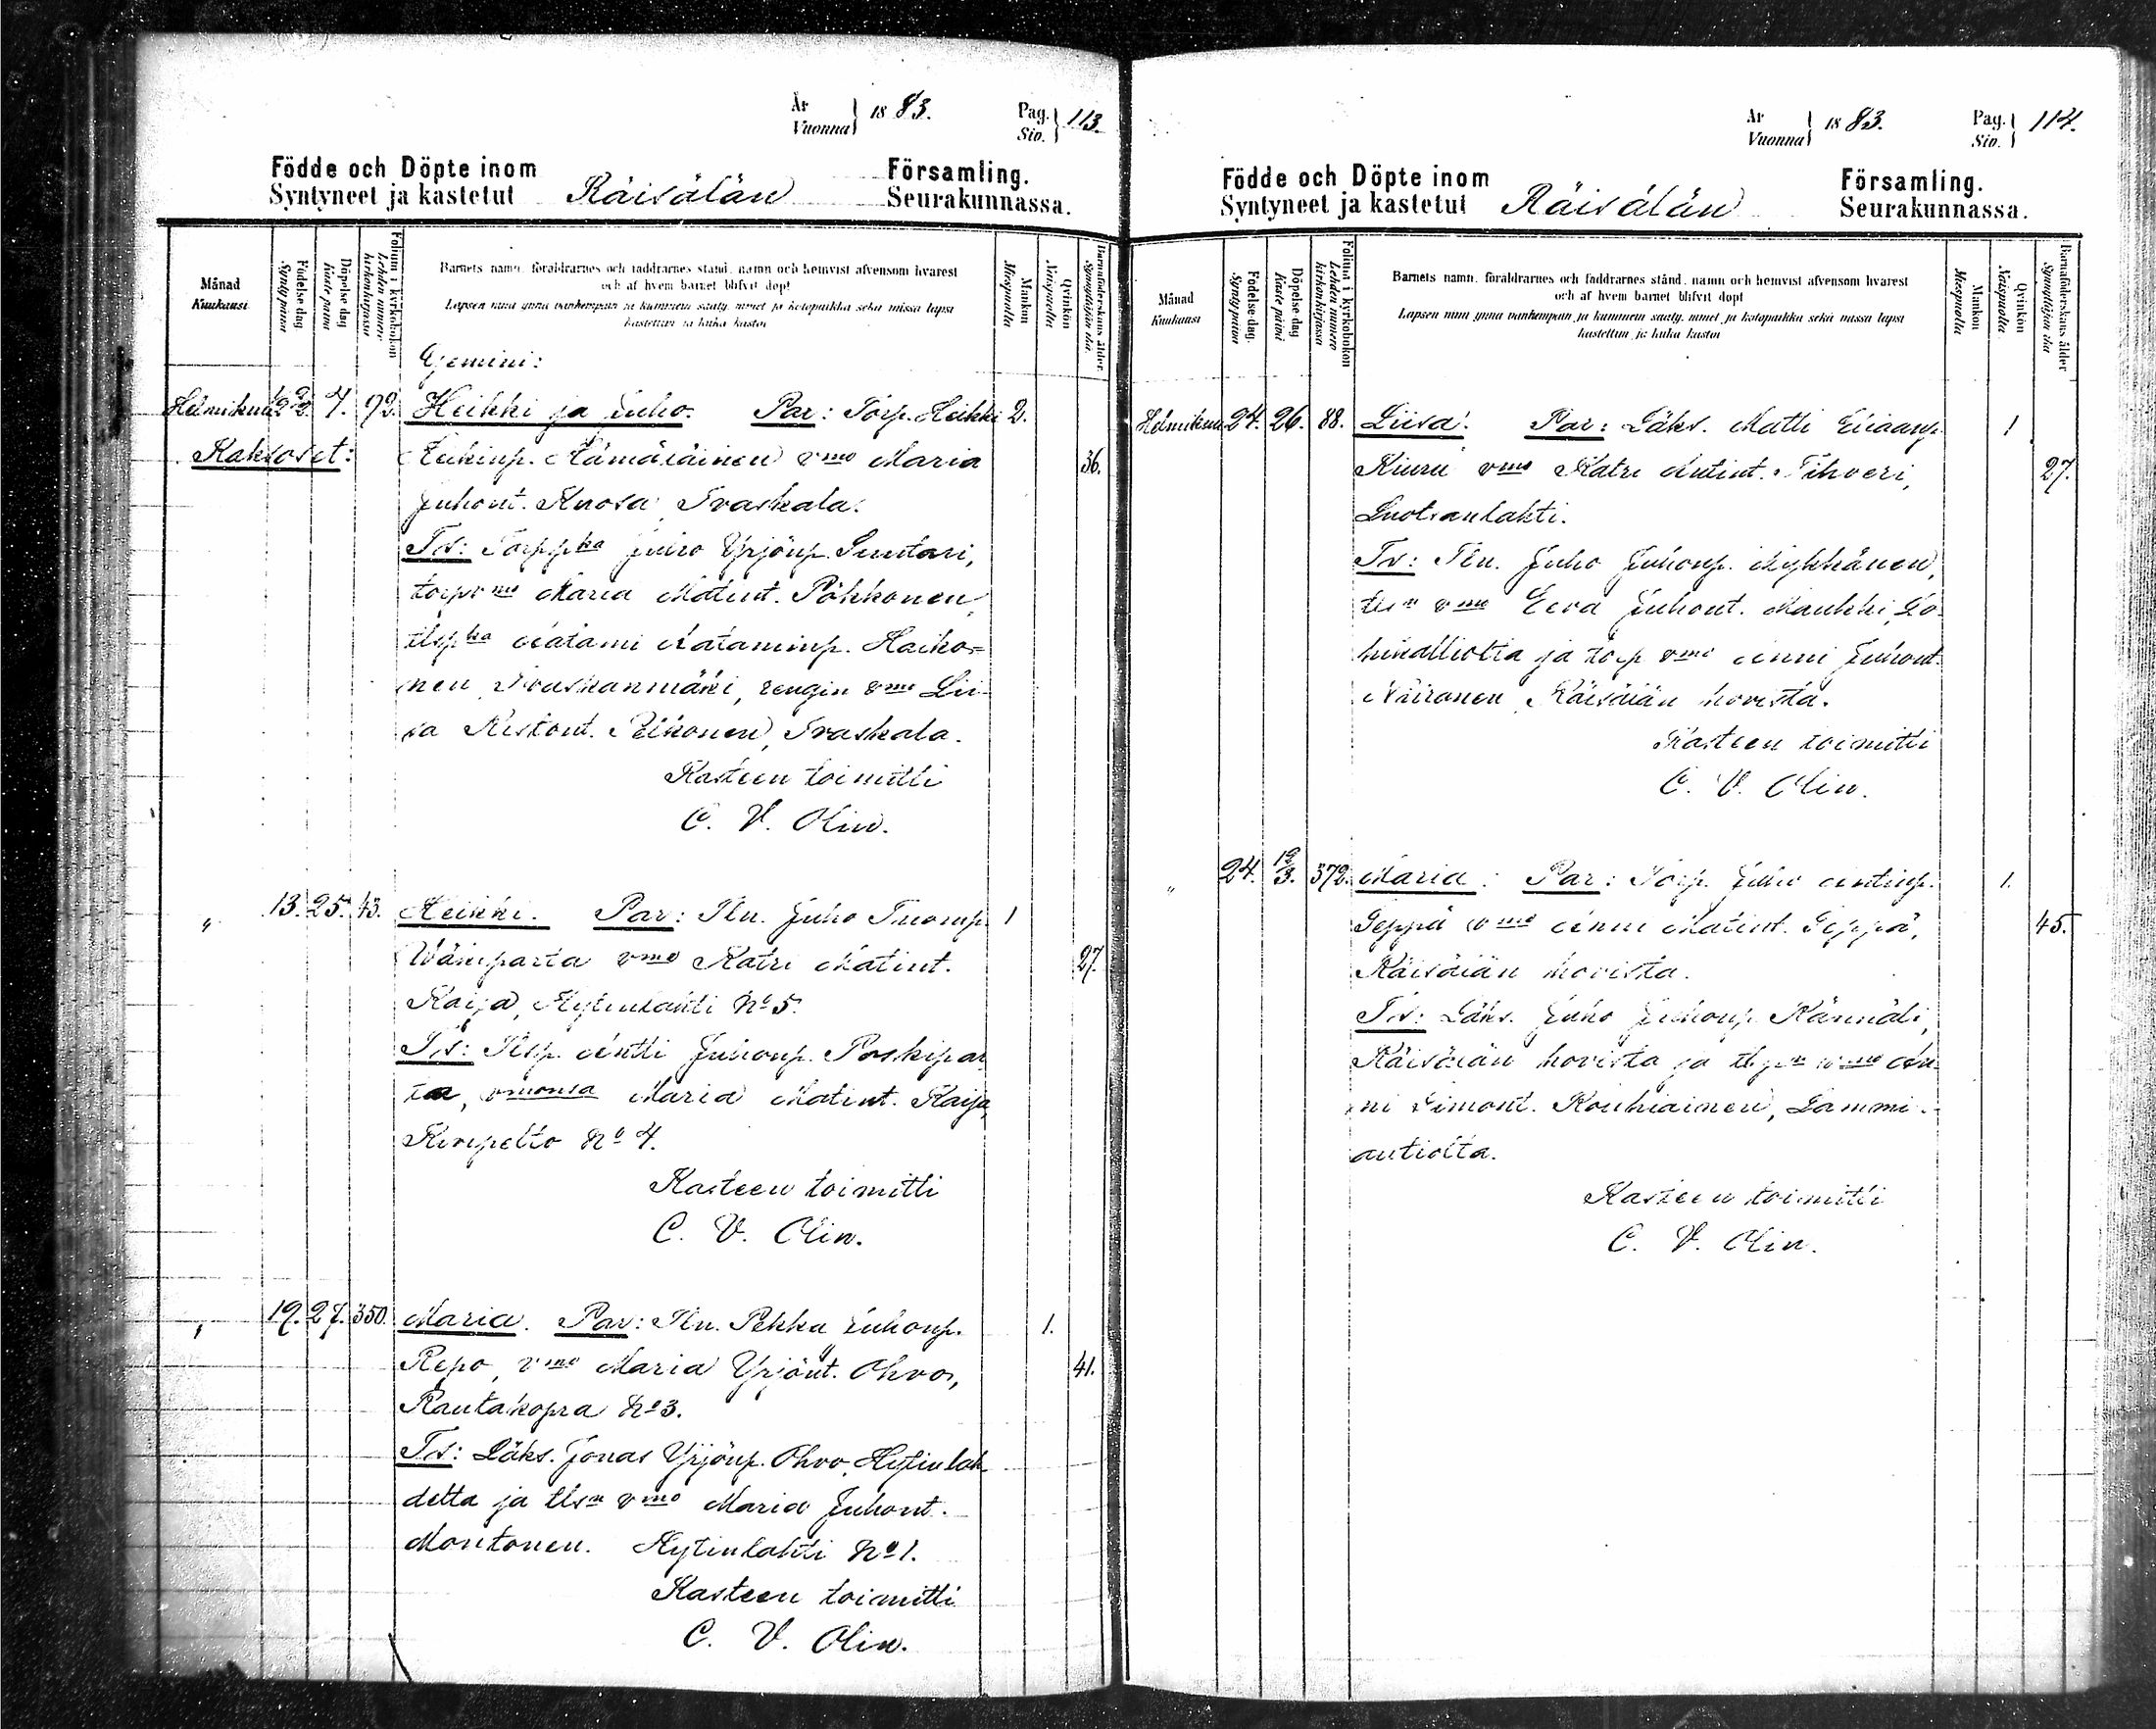 År
Vuonna } 1883.
Pag.
Siv. } 113.
Födde och Döpte inom Församling.
Syntyneet ja kastetut Räisälän Seurakunnassa.
Månad
Kuukausi
Födelse dag
Syntypäivä
Döpelse dag
Kaste päivä
Folium i kyrkoboken
Lehden numero kirkonkirjassa
Barnets namn, föräldrarnes och faddrarnes stånd, namn och hemvist äfvensom hvarest
och af hvem barnet blifvit döpt
Lapsen nimi ynnä vanhempain ja kummein sääty, nimet ja kotopaikka sekä missä lapsi
kastettiin ja kuka kastoi
Mankön
Miespuolta
Qvinkön
Naispuolta
Barnaföderskans ålder
Synnyttäjän ikä
Gemini:
Helmikuu 7. 92. Heikki ja Juho. Par: Torp. Heikki 2.
Kaksoset: Heikinp. Hämäläinen vmo Maria 36.
Juhont. Knosa, Ivaskala.
Td: Torppka Juho Yrjönp. Suutari,
torp vmo Maria Matint. Pökkönen,
tlspka Aatami Aataminp. Haiko-
nen, Ivaskanmäki, rengin vmo Lii-
sa Ristont. Ivaskala.
Kasteen toimitti
C. V. Olin.
" 13. 25. 43. Heikki. Par: Tln. Juho Tuomp. 1
vmo Katri Matint. 27.
Kaija, Hytinlahti No 5.
Td: Tlsp. Antti Juhonp. Poskipar
ta, vmonsa Maria Matint. Kaija,
Kivipelto No 4.
Kasteen toimitti
C. V. Olin.
" 19. 27. 350. Maria. Par: Tln. Pekka Juhonp. 1.
Repo, vmo Maria Yrjönt. Ohvo, 41.
Rautakopra No 3.
Td: Läks. Jonas Yrjönp. Ohvo, Hytinlah
delta ja tlsn vmo Maria Juhont.
Montonen. Hytinlahti No 1.
Kasteen toimitti
C. V. Olin.
År
Vuonna } 1883.
Pag.
Siv. } 114.
Födde och Döpte inom Församling.
Syntyneet ja kastetut Räisälän Seurakunnassa.
Månad
Kuukausi
Födelse dag
Syntypäivä
Döpelse dag
Kaste päivä
Folium i kyrkoboken
Lehden numero kirkonkirjassa
Barnets namn, föräldrarnes och faddrarnes stånd, namn och hemvist äfvensom hvarest
och af hvem barnet blifvit döpt
Lapsen nimi ynnä vanhempain ja kummein sääty, nimet ja kotopaikka sekä missä lapsi
kastettiin ja kuka kastoi
Mankön
Miespuolta
Qvinkön
Naispuolta
Barnaföderskans ålder
Synnyttäjän ikä
Helmikuu 24. 26. 88. Liisa. Par: Läks. Matti Eliaanp. 1
Kiuru vmo Katri Antint. Tihveri, 27.
Luotsanlahti.
Td: Tln. Juho Juhonp. Mykkänen,
tlsn vmo Eeva Juhont. Maukki, Lo-
hikalliolta ja torp vmo Anni Juhont.
Räisälän hovista.
Kasteen toimitti
C. V. Olin.
" 24. 12/3. 572. Maria: Par: Torp. Juho Antinp. 1.
Seppä vmo Anni Matint. Seppä, 45.
Räisälän hovista.
Td: Läks. Juho Juhonp. Kännäli,
Räisälän hovista ja vmo An-
ni Simont. Kouhiainen, Lammi-
autiolta.
Kasteen toimitti
C. V. Olin.